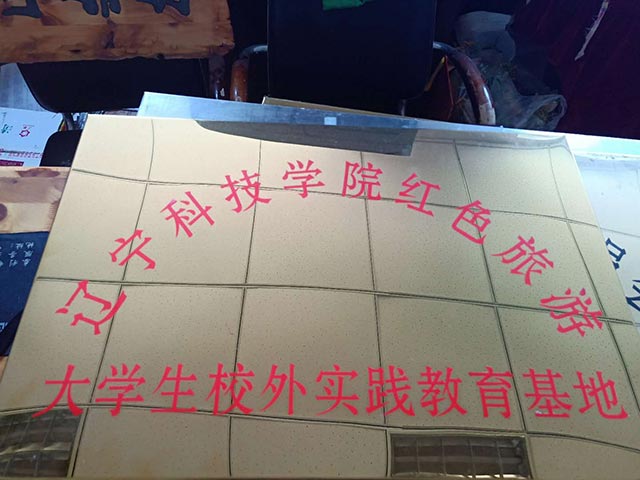 辽宁科技学院红色旅游
大学生校外实践教育基地